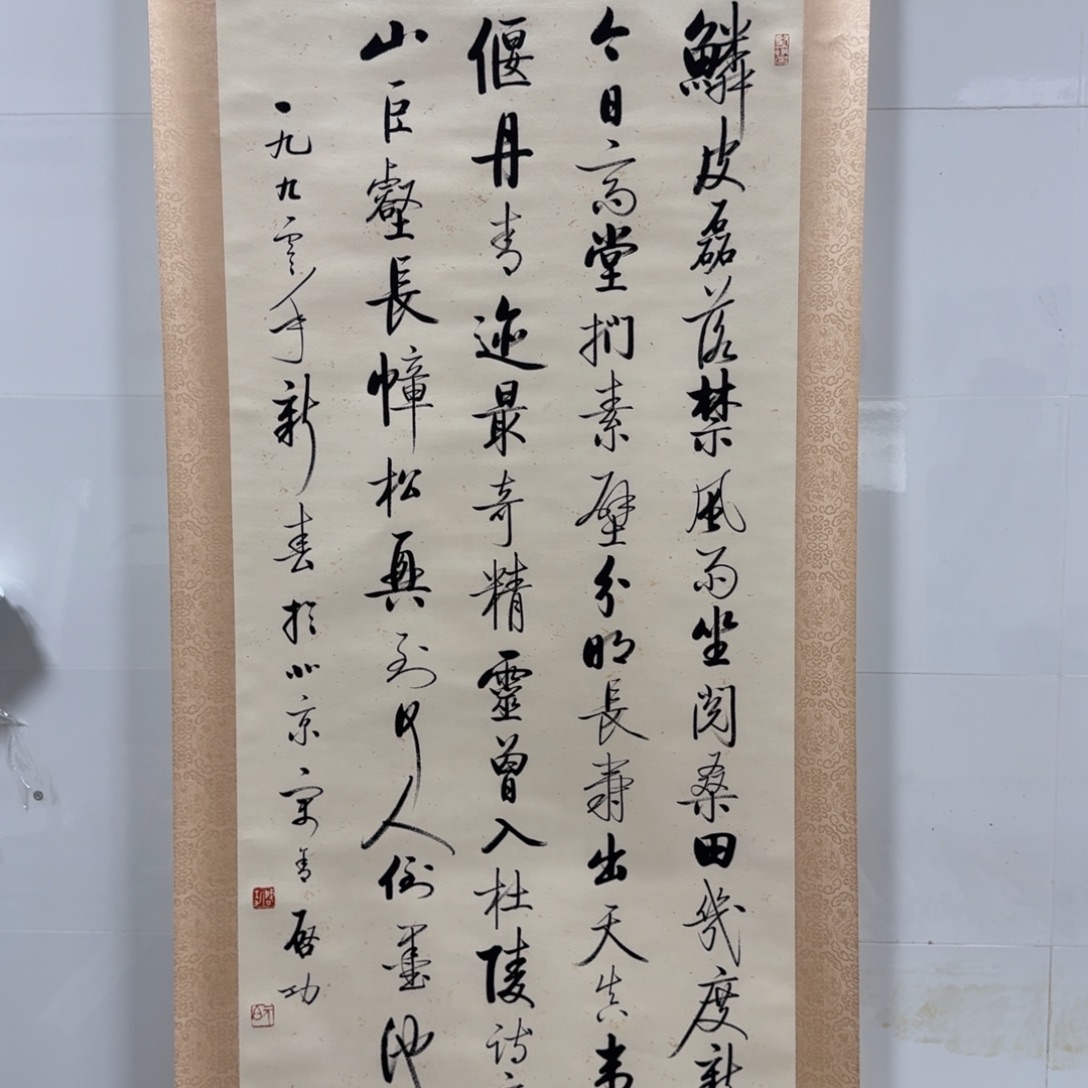 鱗皮磊落禁風雨坐閲桑田幾度新
今日高堂捫素壁分明長壽出天真韋
偃丹青迹最奇精靈曾入杜陵詩
山巨壑長幛松興到何人倒墨池
一九九零年新春於北京寓啓功